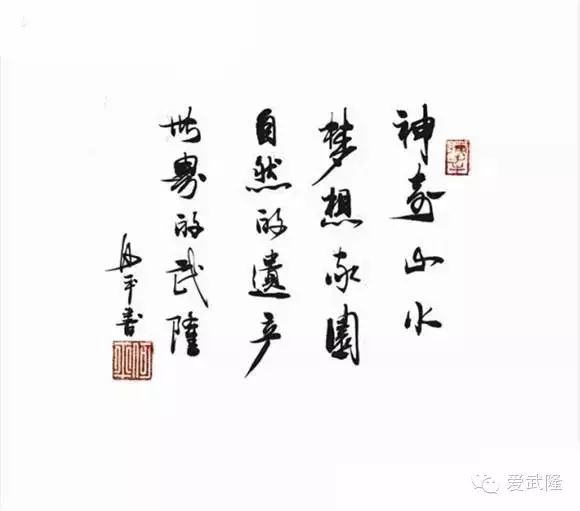 神奇山水
梦想家園
自然的遺产
世界的武隆
平書
爱武隆